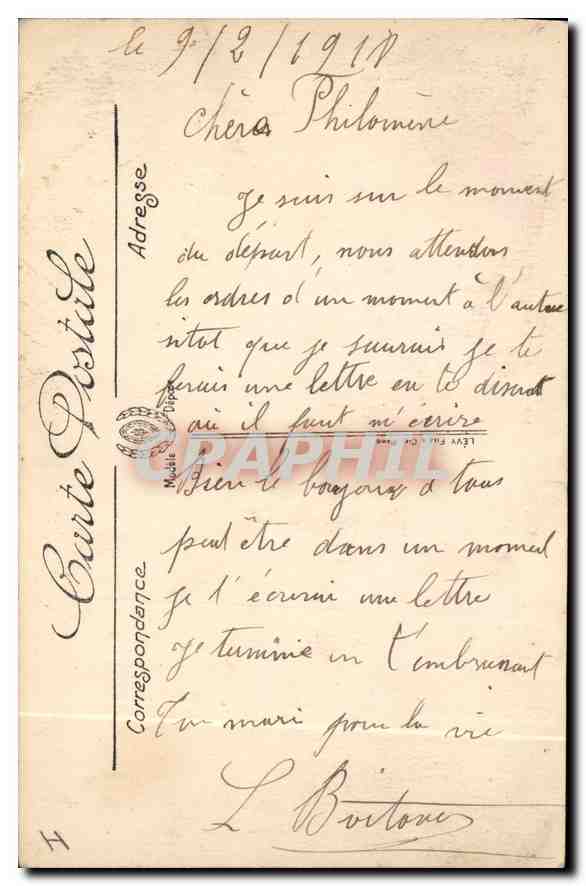 le 9/2/1918
chère Philomène
Je suis sur le moment
du départ, nous attendons
les ordres d'un moment à l'autre
sitot que je saurais je te
ferais une lettre en te disant
où il faut m'écrire
Bien le bonjour a tous
peut être dans un moment
je t'écrirai une lettre
Je termine en t'embrassant
Ton mari pour la vie
L Boitous
Carte Postale
Adresse
Correspondance
Modèle Déposé
LÉVY Fils & Cie Paris
CPAPHIL
4